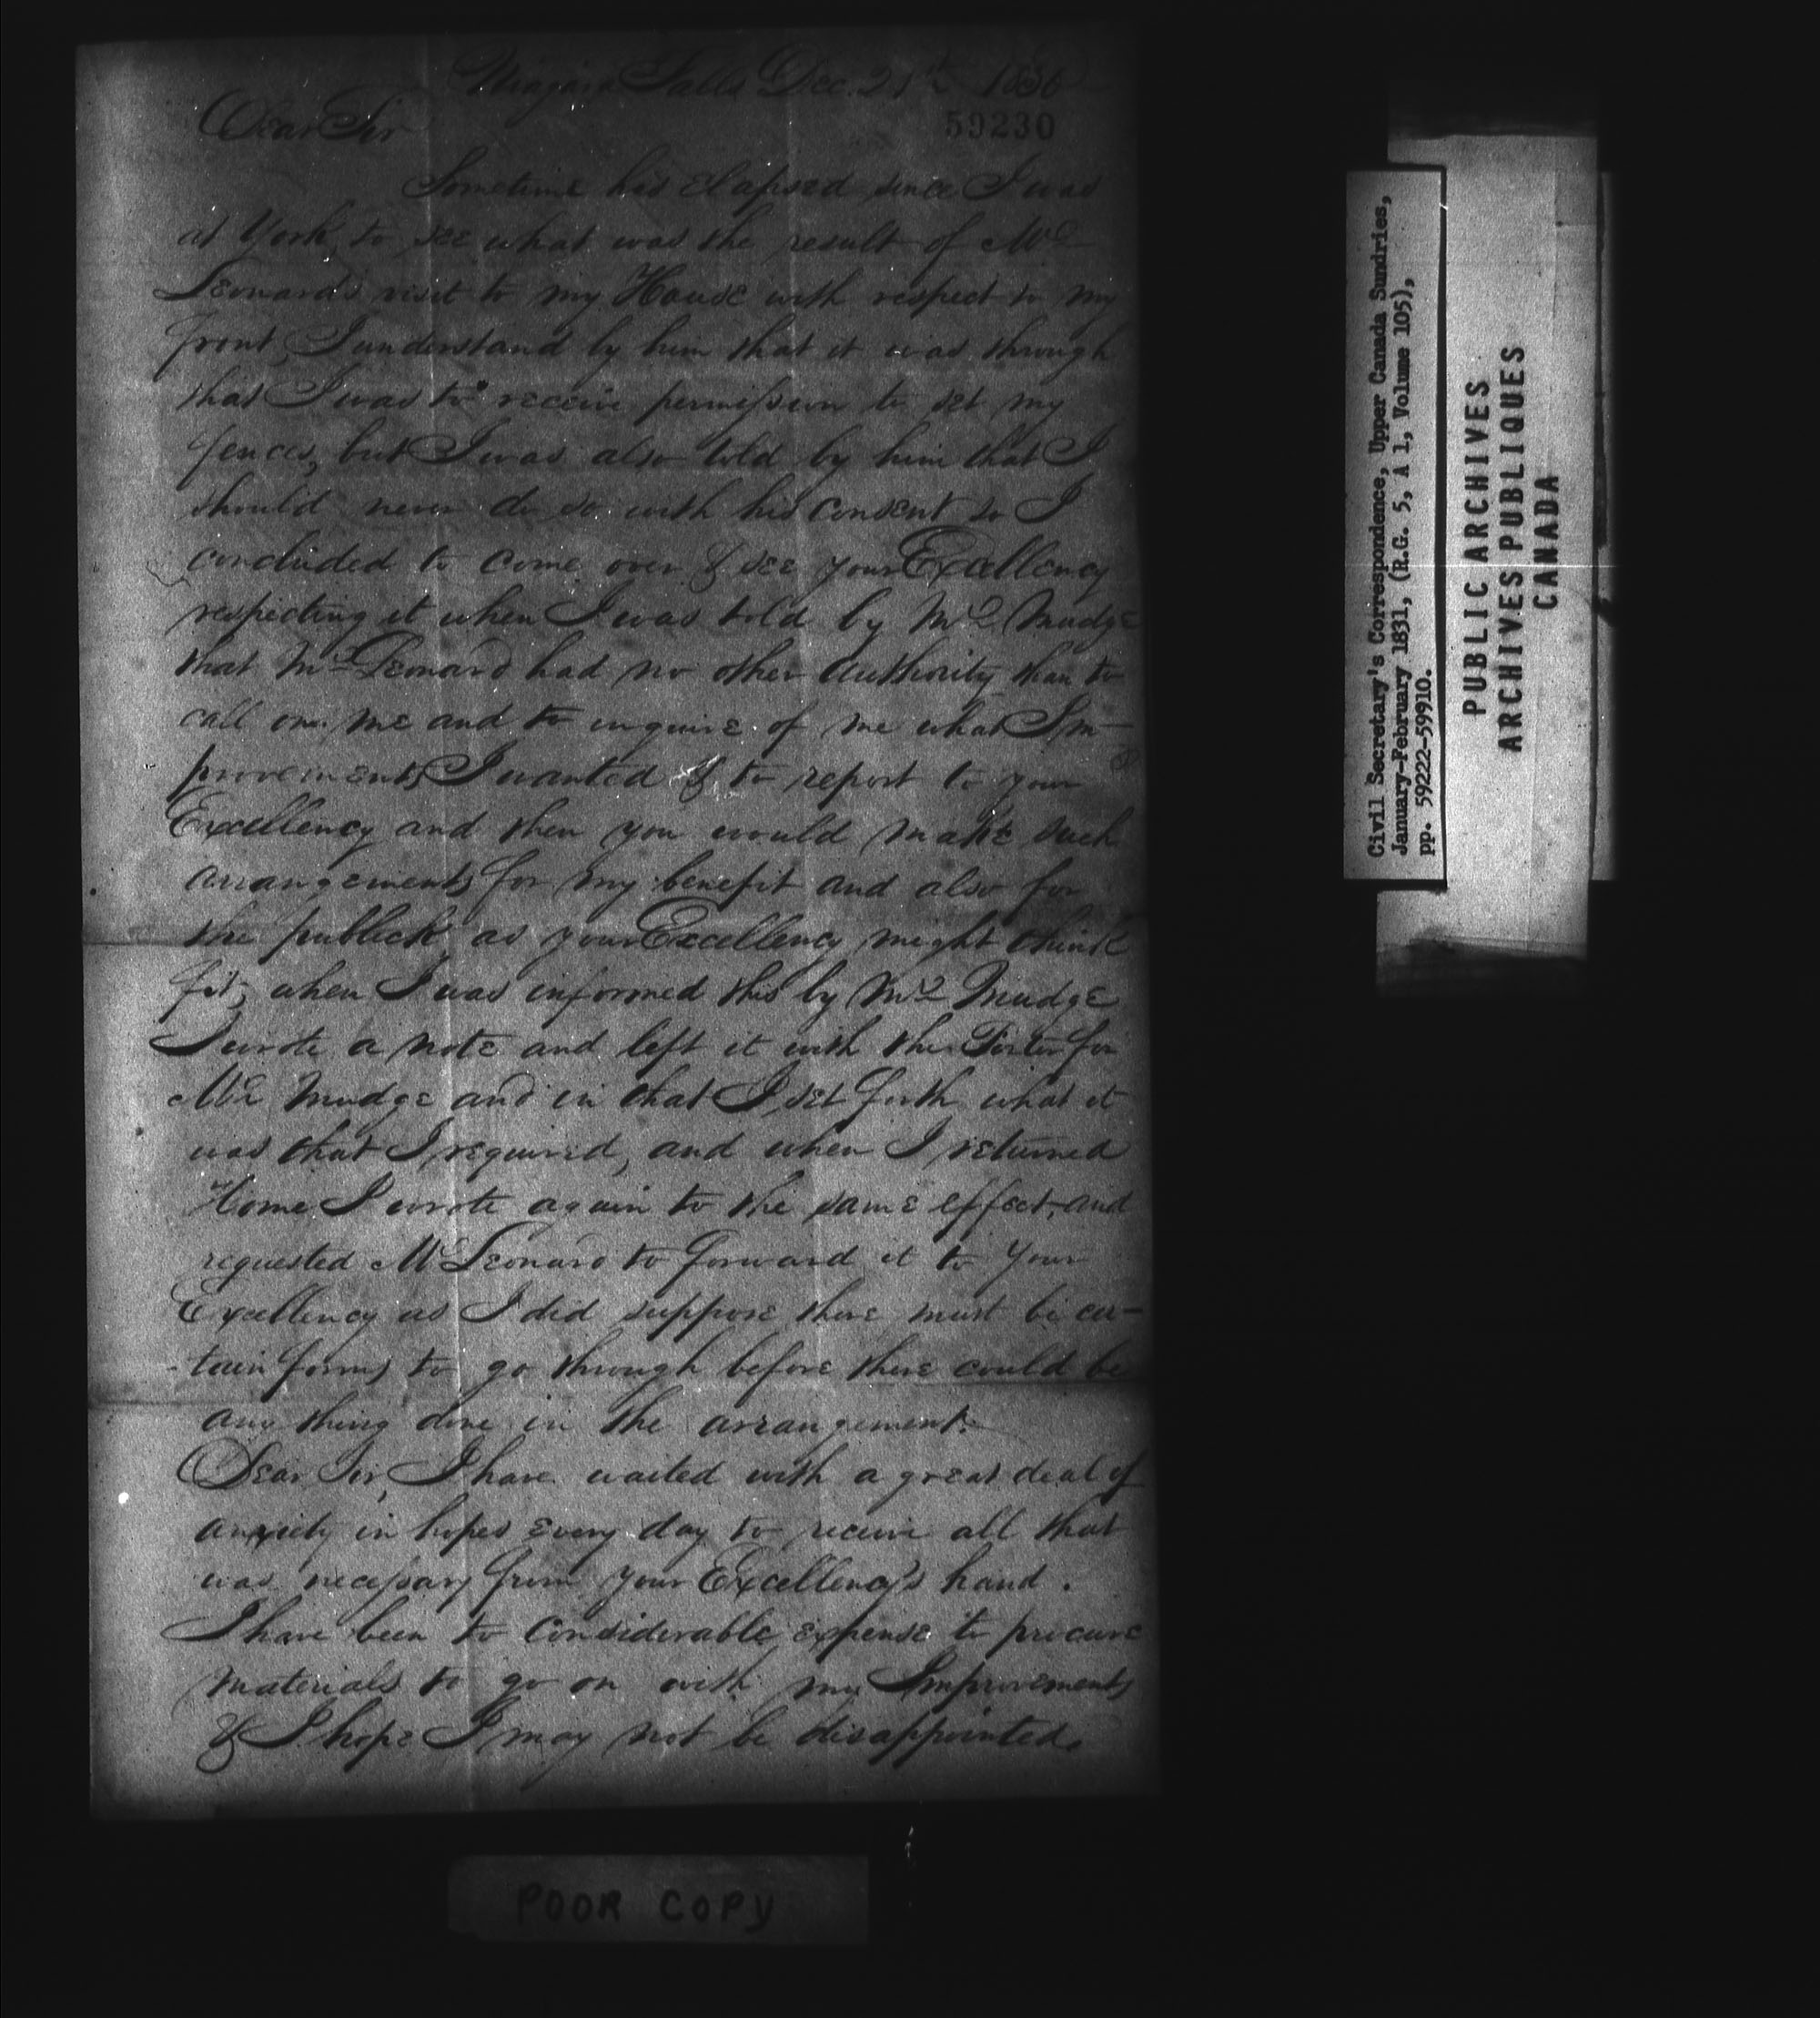 Niagara Falls Dec. 21st 1830
59230
Dear Sir
Sometime has Elapsed since I was
at York, to see what was the result of Mr
Leonards visit to my House with respect to my
front, I understand by him that it was through
that I was to receive permission to set my
fences, but I was also told by him that I
should never do so with his consent so I
concluded to come over & see your Excellency
respecting it when I was told by Mr Mudge
that Mr Leonard had no other Authority than to
call on me and to inquire of me what Im-
provements I wanted & to report to your
Excellency and then you would make such
arrangements for my benefit and also for
the publick as your Excellency might think
fit, when I was informed this by Mr Mudge
I wrote a note and left it with the Porter for
Mr Mudge and in that I set forth what it
was that I required, and when I returned
Home I wrote again to the same effect, and
requested Mr Leonard to forward it to Your
Excellency as I did suppose there must be cer-
tain forms to go through before there could be
any thing done in the arrangement.
Dear Sir, I have waited with a great deal of
anxiety in hopes every day to receive all that
was necessary from your Excellency's hand.
I have been to Considerable expense to procure
materials to go on with my Improvements
& I hope I may not be disappointed.
POOR COPY
Civil Secretary's Correspondence, Upper Canada Sundries,
January-February 1831, (R.G. 5, A 1, Volume 105),
pp. 59222-59910.
PUBLIC ARCHIVES
ARCHIVES PUBLIQUES
CANADA